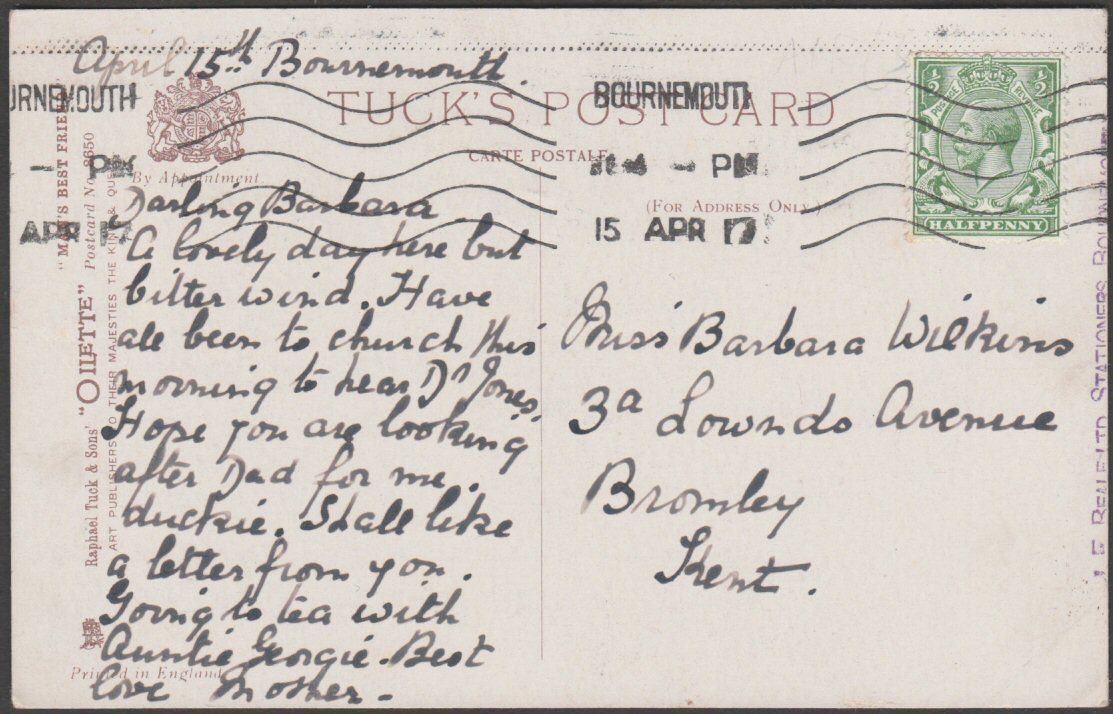 April 15th Bournemouth.
BOURNEMOUTH
- PM
APR 17
TUCK'S POST CARD
CARTE POSTALE
(FOR ADDRESS ONLY.)
By Appointment.
BOURNEMOUTH
- PM
15 APR 17
½ POSTAGE REVENUE ½
HALFPENNY
Darling Barbara
A lovely day here but
bitter wind. Have
all been to church this
morning to hear Dr Jones.
Hope you are looking
after Dad for me.
duckie. Shall like
a letter from you.
Going to tea with
Auntie Georgie. Best
love Mother -
Miss Barbara Wilkins
3a Lownds Avenue
Bromley
Kent.
"MAN'S BEST FRIEND"
Postcard No. 8650
Raphael Tuck & Sons' "OILETTE"
ART PUBLISHERS TO THEIR MAJESTIES THE KING & QUEEN
Printed in England
J. E. BEALE LTD STATIONERS BOURNEMOUTH